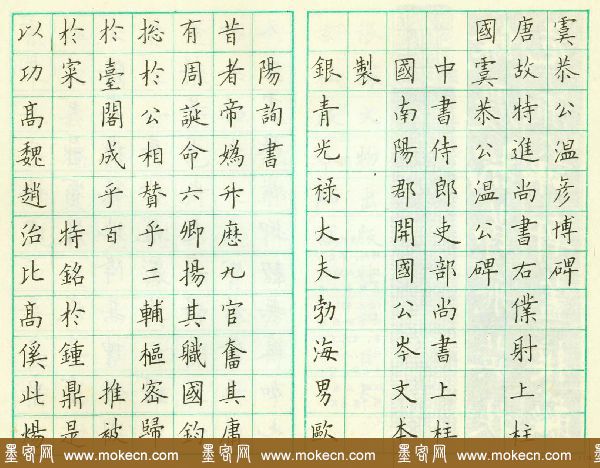 虞恭公温彦博碑
唐故特進尚書右僕射上柱
國虞恭公温公碑
中書侍郎吏部尚書上柱
國南陽郡開國公岑文本
製
銀青光禄大夫勃海男歐
陽詢書
昔者帝媯升歷九官奮其庸
有周誕命六卿揚其職國鈞
揔於公相贊乎二輔樞密歸
於臺閣成乎百 推被
於寀 特銘於鍾鼎是
以功髙魏趙治比髙傒此
墨客网 www.mokecn.com 墨客网 www.mokecn.com 墨客网 www.mokecn.com